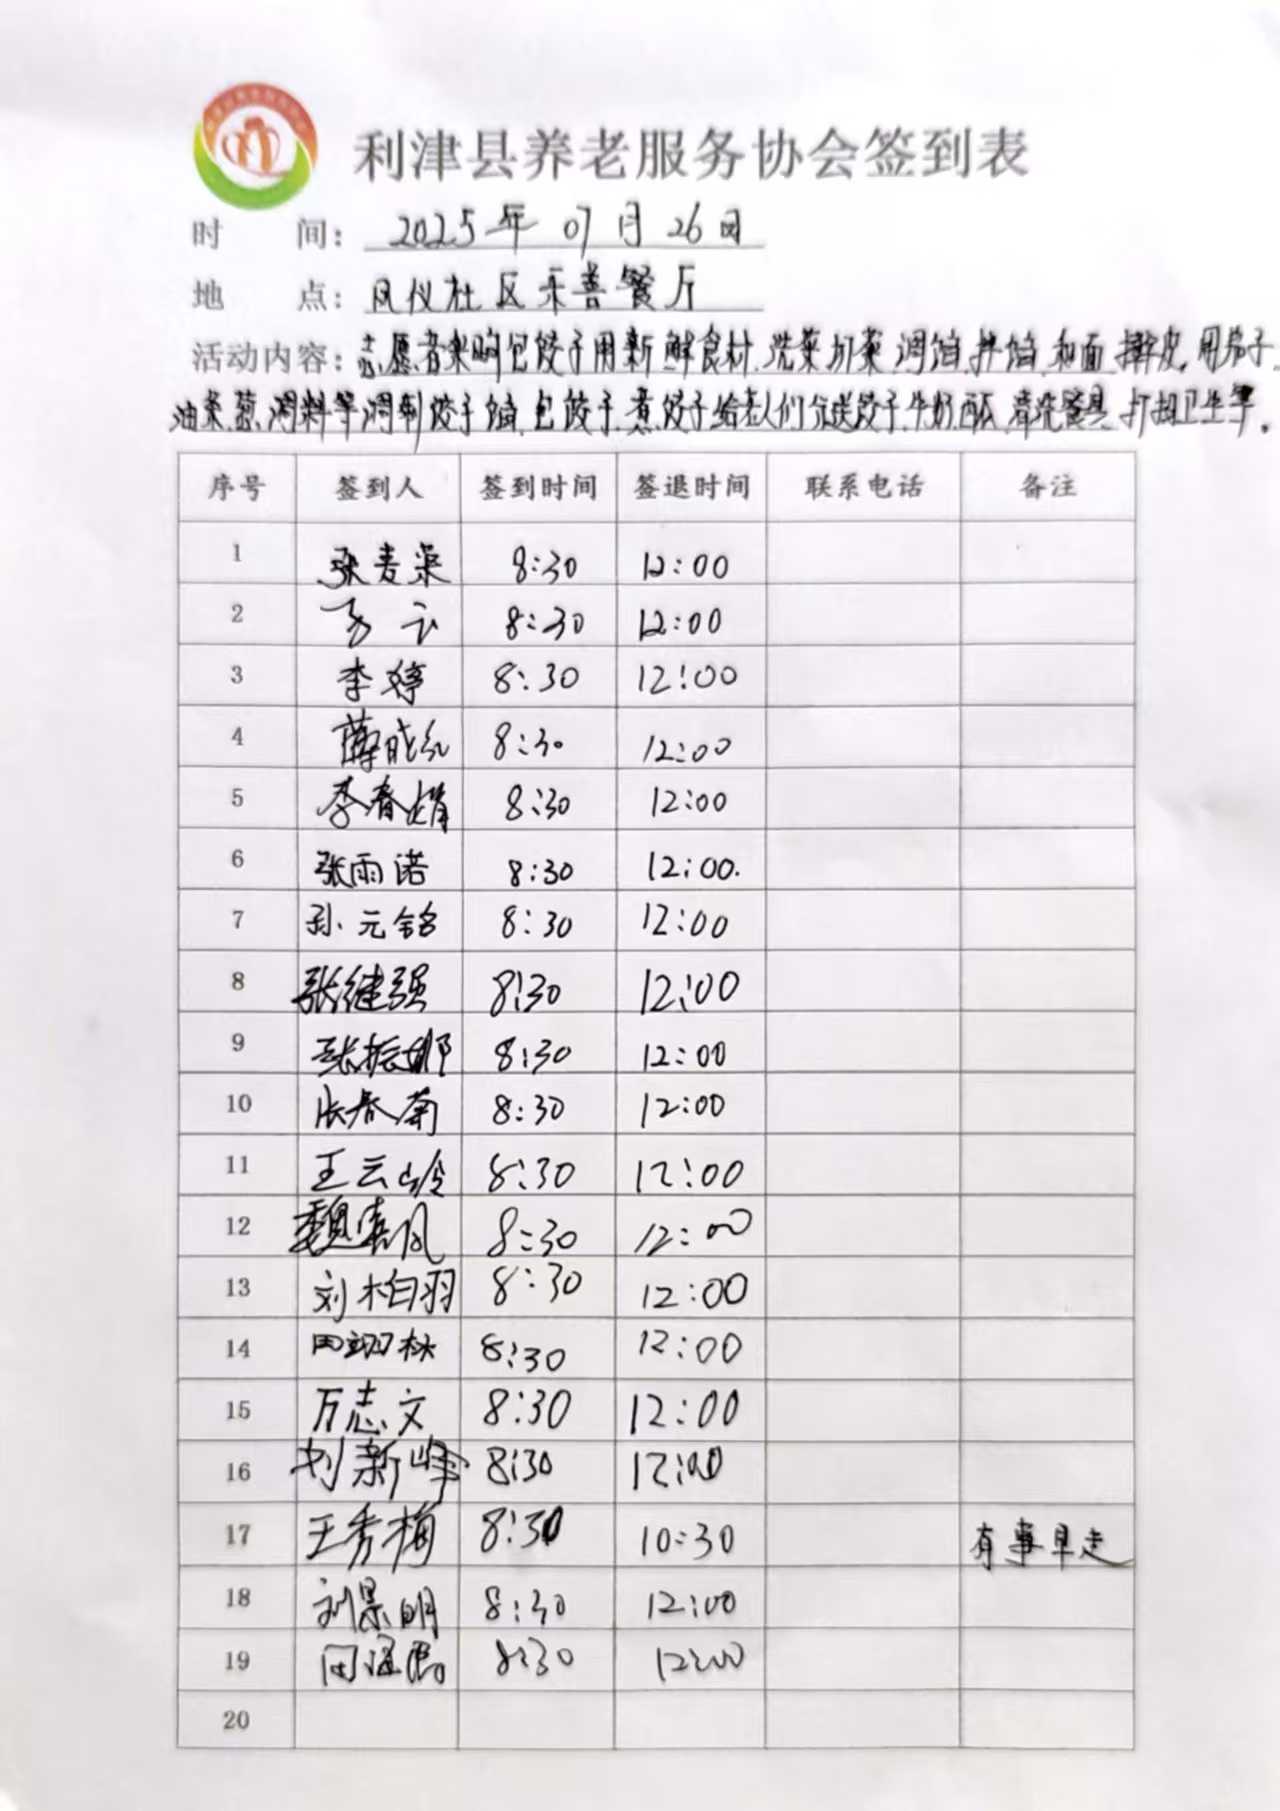 利津县养老服务协会签到表
时 间： 2025年07月26日
地 点： 凤仪社区乐善餐厅
活动内容：志愿者来响包饺子用新鲜食材.洗菜切菜.调馅.拌馅.和面.擀皮.用茄子.
油条.葱.调料等调制饺子馅.包饺子.煮饺子给老人们分送饺子.牛奶.西瓜.清洗餐具.打扫卫生等.
序号 签到人 签到时间 签退时间 联系电话 备注
1 张 8:30 12:00
2 8:30 12:00
3 李婷 8:30 12:00
4 薛晓红 8:30 12:00
5 李春娟 8:30 12:00
6 张雨诺 8:30 12:00.
7 孙元铭 8:30 12:00
8 张继强 8:30 12:00
9 张振娜 8:30 12:00
10 张春菊 8:30 12:00
11 王云岭 8:30 12:00
12 魏春凤 8:30 12:00
13 刘柏羽 8:30 12:00
14 田翊林 8:30 12:00
15 万志文 8:30 12:00
16 刘新峰 8:30 12:00
17 王秀梅 8:30 10:30 有事早走
18 刘景明 8:30 12:00
19 田 8:30 12:00
20